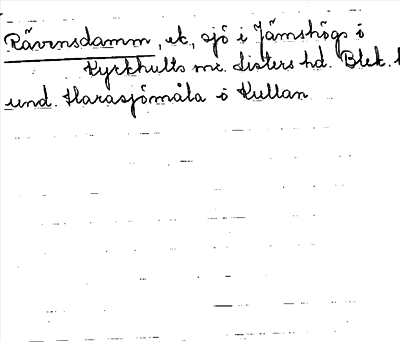 Rävnsdamm, et, sjö i Jämshögs o
Kyrkhults snr. Listers hd. Blek. l
und. Harasjömåla o Kullan